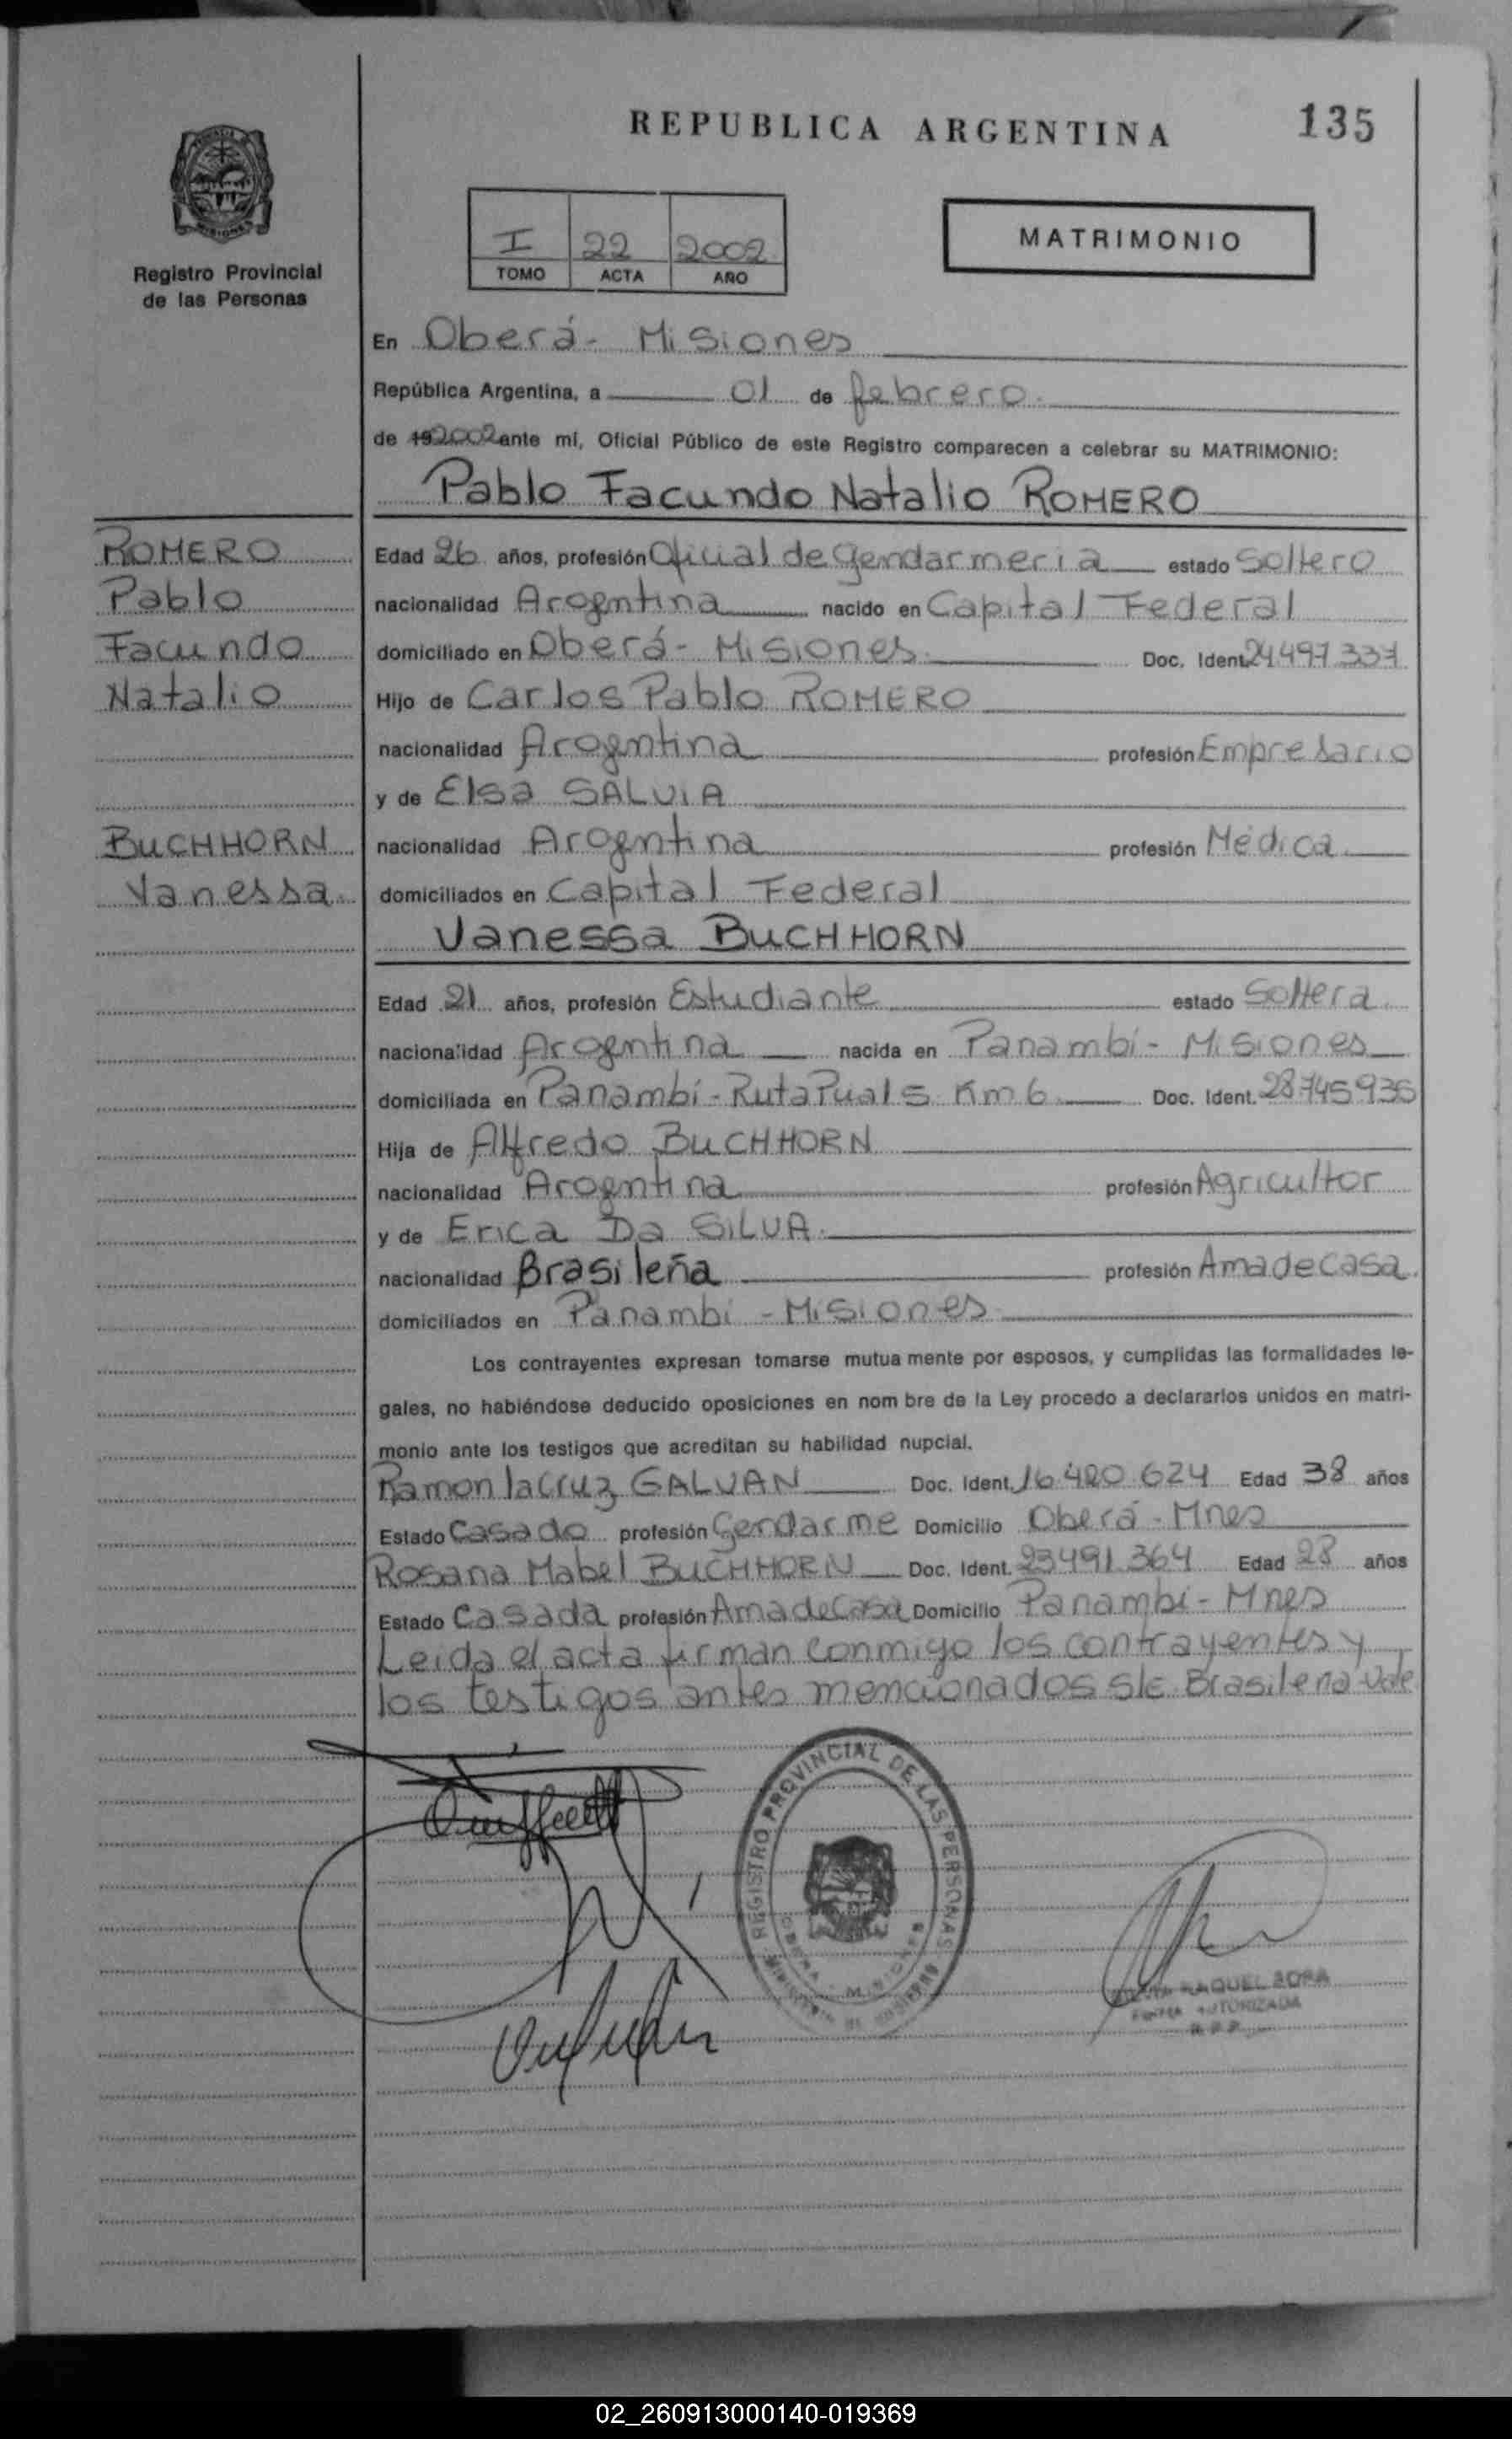 REPUBLICA ARGENTINA
135
Registro Provincial
de las Personas
I 22 2002
TOMO ACTA AÑO
MATRIMONIO
En Oberá - Misiones
República Argentina, a 01 de febrero.
de 192002 ante mí, Oficial Público de este Registro comparecen a celebrar su MATRIMONIO:
Pablo Facundo Natalio ROMERO
ROMERO
Pablo
Facundo
Natalio
Edad 26 años, profesión Oficial de Gendarmeria estado Soltero
nacionalidad Argentina nacido en Capital Federal
domiciliado en Oberá - Misiones. Doc. Ident. 24497337
Hijo de Carlos Pablo ROMERO
nacionalidad Argentina profesión Empresario
y de Elsa SALVIA
BUCHHORN
Vanessa.
nacionalidad Argentina profesión Médica
domiciliados en Capital Federal
Vanessa BUCHHORN
Edad 21 años, profesión Estudiante estado Soltera
nacionalidad Argentina nacida en Panambí - Misiones
domiciliada en Panambí - Ruta Pual 5 Km 6 Doc. Ident. 28745935
Hija de Alfredo BUCHHORN
nacionalidad Argentina profesión Agricultor
y de Erica Da SILVA.
nacionalidad Brasileña profesión Ama de casa.
domiciliados en Panambí - Misiones
Los contrayentes expresan tomarse mutua mente por esposos, y cumplidas las formalidades le-
gales, no habiéndose deducido oposiciones en nom bre de la Ley procedo a declararlos unidos en matri-
monio ante los testigos que acreditan su habilidad nupcial.
Ramon lacruz GALVAN Doc. Ident. 16.420.624 Edad 38 años
Estado Casado profesión Gendarme Domicilio Oberá - Mnes
Rosana Mabel BUCHHORN Doc. Ident. 23491.364 Edad 28 años
Estado Casada profesión Ama de Casa Domicilio Panambí - Mnes
Leida el acta firman conmigo los contrayentes y
los testigos antes mencionados S/E Brasileña Vale
REGISTRO PROVINCIAL DE LAS PERSONAS
OBERA - MISIONES
MINISTERIO DE GOBIERNO
RAQUEL
FIRMA AUTORIZADA
02_260913000140-019369